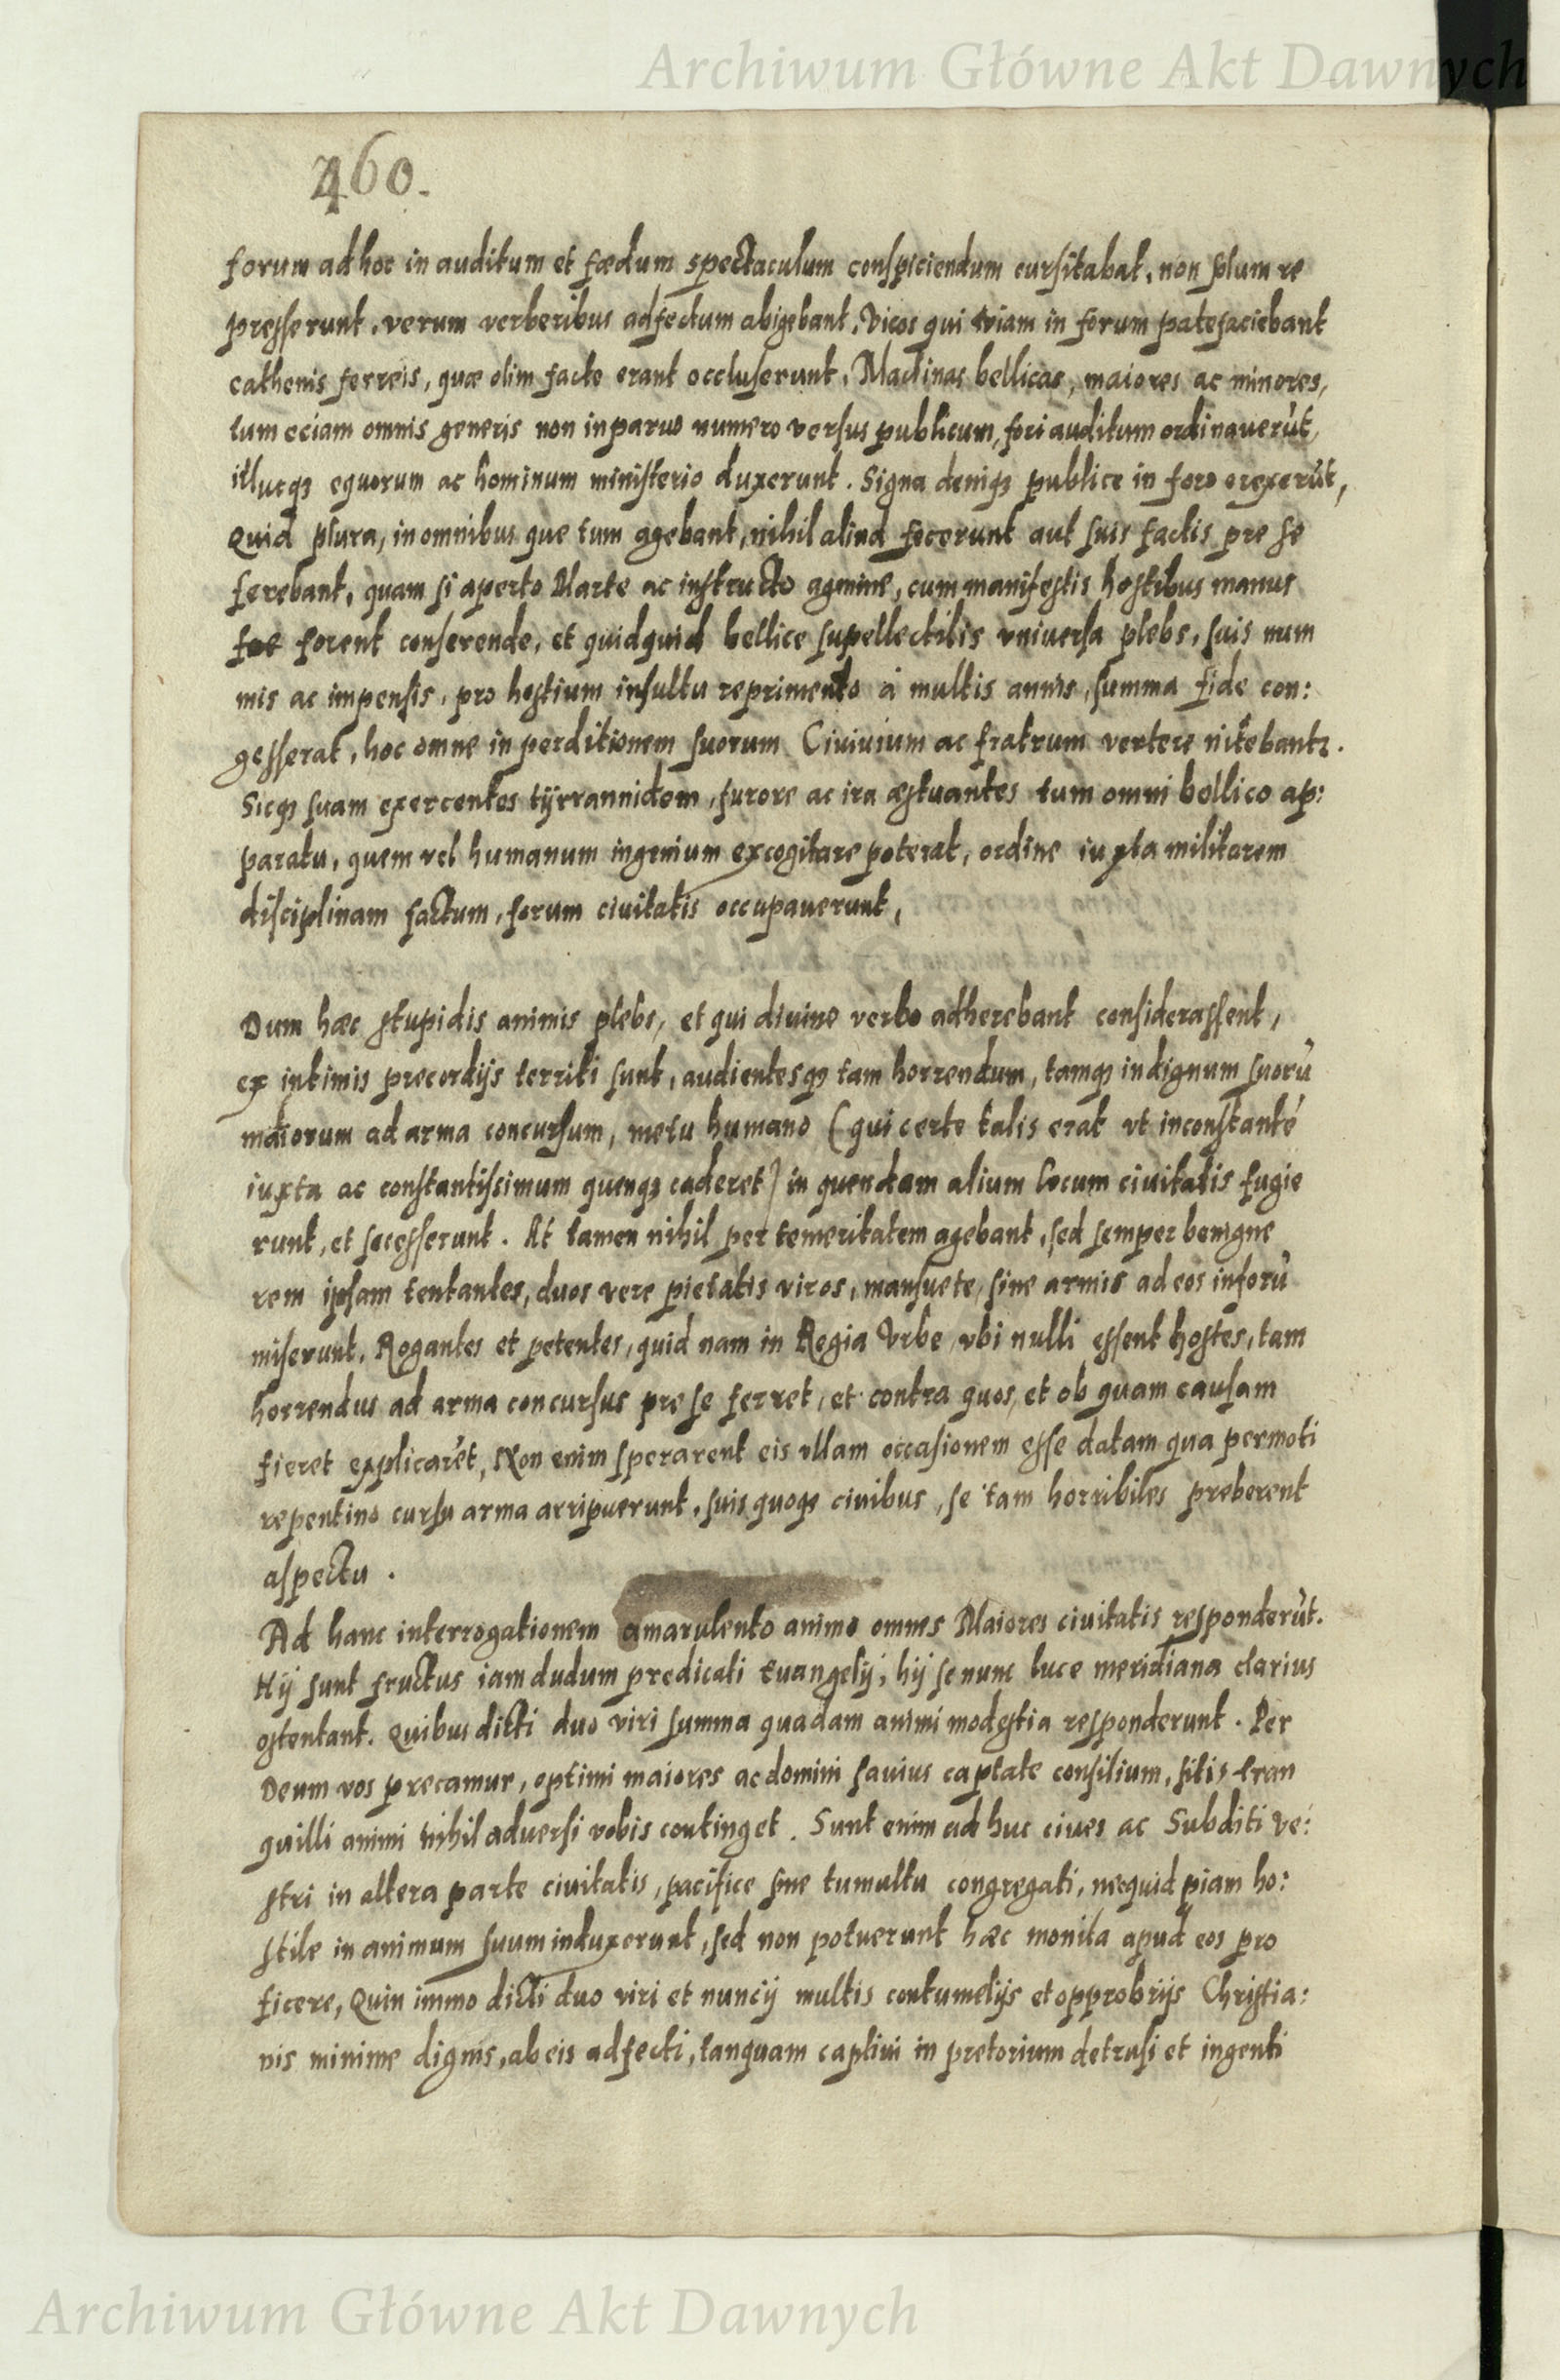 Archiwum Główne Akt Dawnych
460.
forum ad hoc in auditum et fædum spectaculum conspiciendum cursitabat, non solum re
presserunt, verum verberibus adfectum abigebant, Vicos qui viam in forum patefaciebant
cathenis ferreis, quæ olim facte erant occluserunt, Machinas bellicas, maiores ac minores,
tum eciam omnis generis non in paruo numero versus publicum, fori auditum ordinauerūt,
illucqȝ equorum ac hominum ministerio duxerunt. Signa deniqȝ publice in foro erexerūt,
Quid plura, in omnibus que tum agebant, nihil aliud fecerunt aut suis factis pre se
ferebant, quam si aperto Marte ac instructo agmine, cum manifestis hostibus manus
foe forent conserende, et quidquid bellice supellectilis vniuersa plebs, suis num
mis ac impensis, pro hostium insultu reprimento à multis annis, summa fide con:
gesserat, hoc omne in perditionem suorum Ciuiuium ac fratrum vertere nitebantr.
Sicqȝ suam exercentes tÿrrannidem, furore ac ira æstuantes tum omni bellico ap:
paratu, quem vel humanum ingenium excogitare poterat, ordine iuxta militarem
disciplinam factum, forum ciuitatis occupauerunt,
Dum hæc stupidis animis plebs, et qui diuino verbo adherebant considerassent,
ex intimis precordijs territi sunt, audientesqȝ tam horrendum, tamqȝ indignum suorū
maiorum ad arma concursum, metu humano (qui certe talis erat vt inconstantē
iuxta ac constantissimum quenqȝ caderet) in quendam alium locum ciuitatis fugie
runt, et secesserunt. At tamen nihil per temeritatem agebant, sed semper benigne
rem ipsam tentantes, duos vere pietatis viros, mansuete, sine armis ad eos in forū
miserunt, Rogantes et petentes, quid nam in Regia Vrbe, vbi nulli essent hostes, tam
horrendus ad arma concursus pre se ferret, et contra quos, et ob quam causam
fieret explicarēt, Non enim sperarent eis vllam occasionem esse datam qua permoti
repentino cursu arma arripuerunt, suis quoqȝ ciuibus, se tam horribiles preberent
aspectu.
Ad hanc interrogationem amarulento animo omnes Maiores ciuitatis responderūt.
Hij sunt fructus iam dudum predicati Euangelij, hij se nunc luce meridiana clarius
ostentant. Quibus dicti duo viri summa quadam animi modestia responderunt. Per
Deum vos precamur, optimi maiores ac domini sauius captate consilium, sitis tran
quilli animi nihil aduersi vobis continget. Sunt enim ad huc ciues ac Subditi ve:
stri in altera parte ciuitatis, pacifice sine tumultu congregati, necquid piam ho:
stile in animum suum induxerunt, sed non potuerunt hæc monita apud eos pro
ficere, Quin immo dicti duo viri et nuncij multis contumelijs et opprobrijs Christia:
nis minime dignis, ab eis adfecti, tanquam captiui in pretorium detrusi et ingenti
Archiwum Główne Akt Dawnych